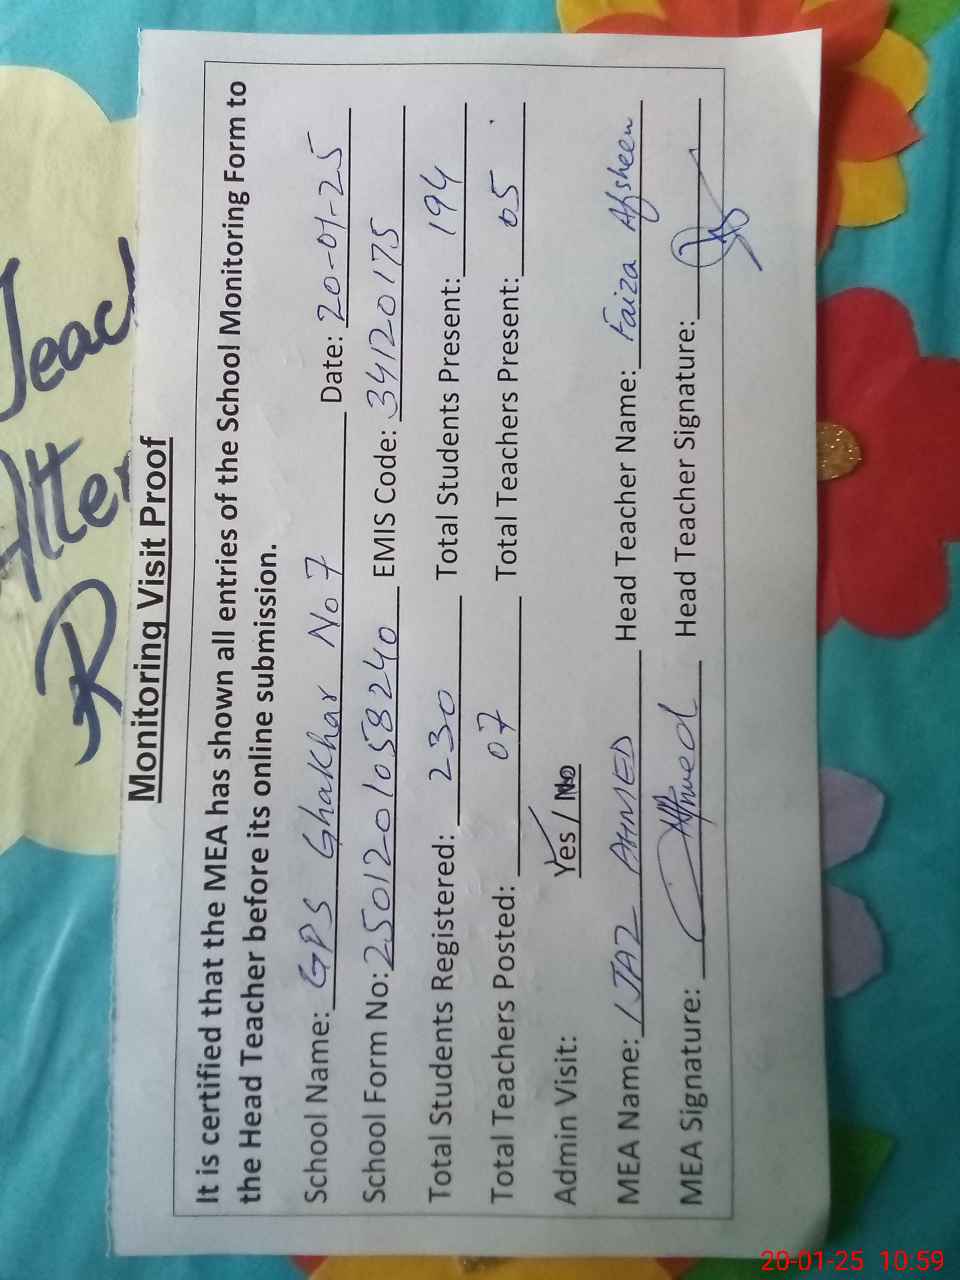 Monitoring Visit Proof
It is certified that the MEA has shown all entries of the School Monitoring Form to
the Head Teacher before its online submission.
School Name: GPS Ghakhar No 7 Date: 20-01-25
School Form No: 2501201058240 EMIS Code: 34120175
Total Students Registered: 230 Total Students Present: 194
Total Teachers Posted: 07 Total Teachers Present: 05
Admin Visit: Yes / No
MEA Name: IJAZ AHMED Head Teacher Name: Faiza Afsheen
MEA Signature: Ahmed Head Teacher Signature:
20-01-25 10:59